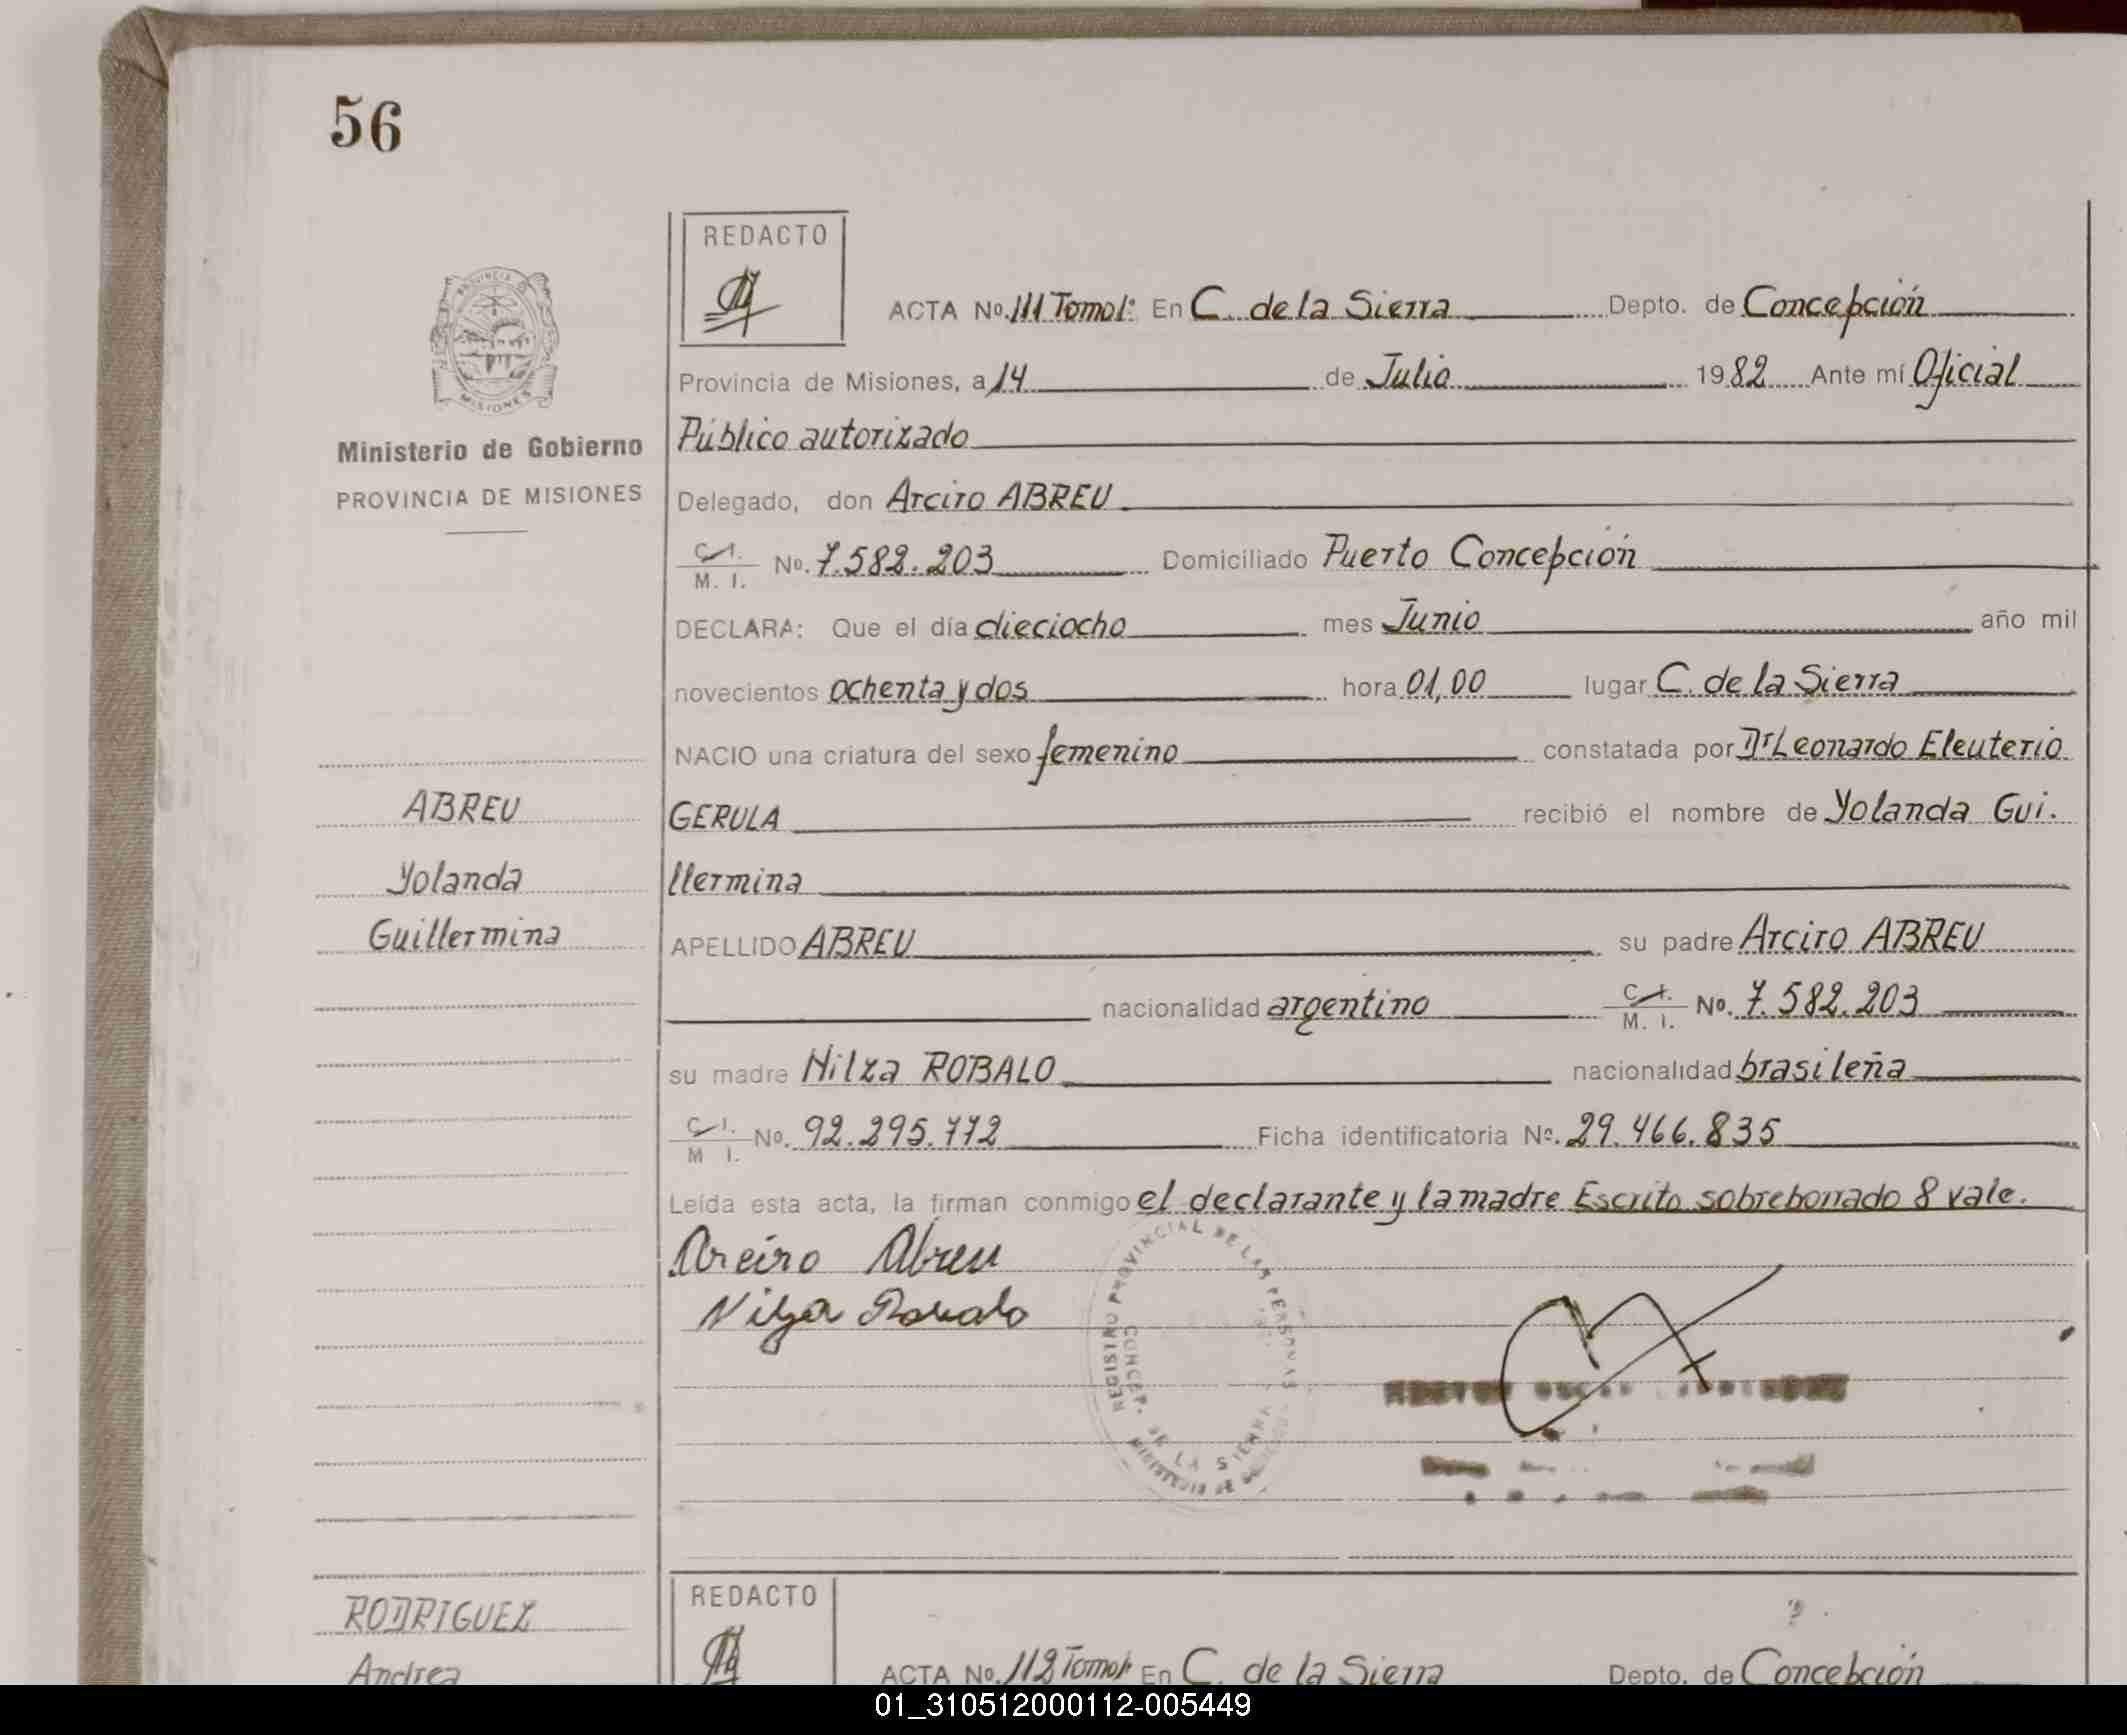 56
REDACTO
PROVINCIA DE
MISIONES
Ministerio de Gobierno
PROVINCIA DE MISIONES
ACTA No. 111 Tomo I: En C. de la Sierra Depto. de Concepción
Provincia de Misiones, a 14 de Julio 1982 Ante mí Oficial
Público autorizado
Delegado, don Arciro ABREU
C. I.
M. I.
No. 7.582.203 Domiciliado Puerto Concepción
DECLARA: Que el día dieciocho mes Junio año mil
novecientos ochenta y dos hora 01,00 lugar C. de la Sierra
NACIO una criatura del sexo femenino constatada por Dr Leonardo Eleuterio
ABREU
GERULA recibió el nombre de Yolanda Gui.
Yolanda
llermina
Guillermina
APELLIDO ABREU su padre Arciro ABREU
nacionalidad argentino C. I. M. I. No. 7.582.203
su madre Nilza ROBALO nacionalidad brasileña
C. I.
M I.
No. 92.295.772 Ficha identificatoria No. 29.466.835
Leída esta acta, la firman conmigo el declarante y la madre Escrito sobreborrado 8 vale.
Arciro Abreu
Nilza Robalo
REGISTRO PROVINCIAL DE LAS PERSONAS
CONCEP. DE LA SIERRA
RODRIGUEZ
Andrea
REDACTO
ACTA No. 112 Tomo I: En C. de la Sierra Depto. de Concepción
01_310512000112-005449